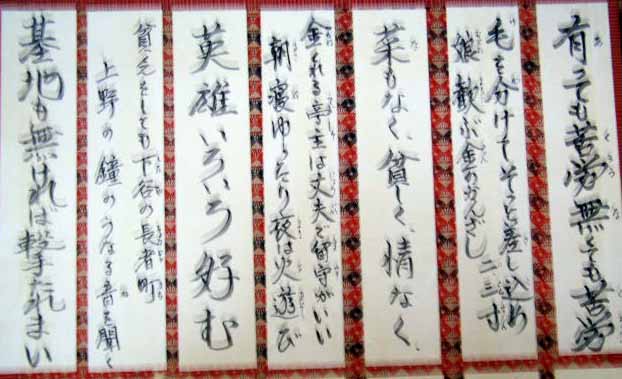 有っても苦労無くても苦労
毛を分けてそっと差し込め
娘歓ぶ金のかんざし二三寸
菜もなく、貧しく、情なく、
金くれる亭主は丈夫で留守がいい
朝寝ゆったり夜は火遊び
英雄いろいろ好む
貧乏をしても下谷の長者町
上野の鐘のうなる音を聞く
基地も無ければ撃たれまい